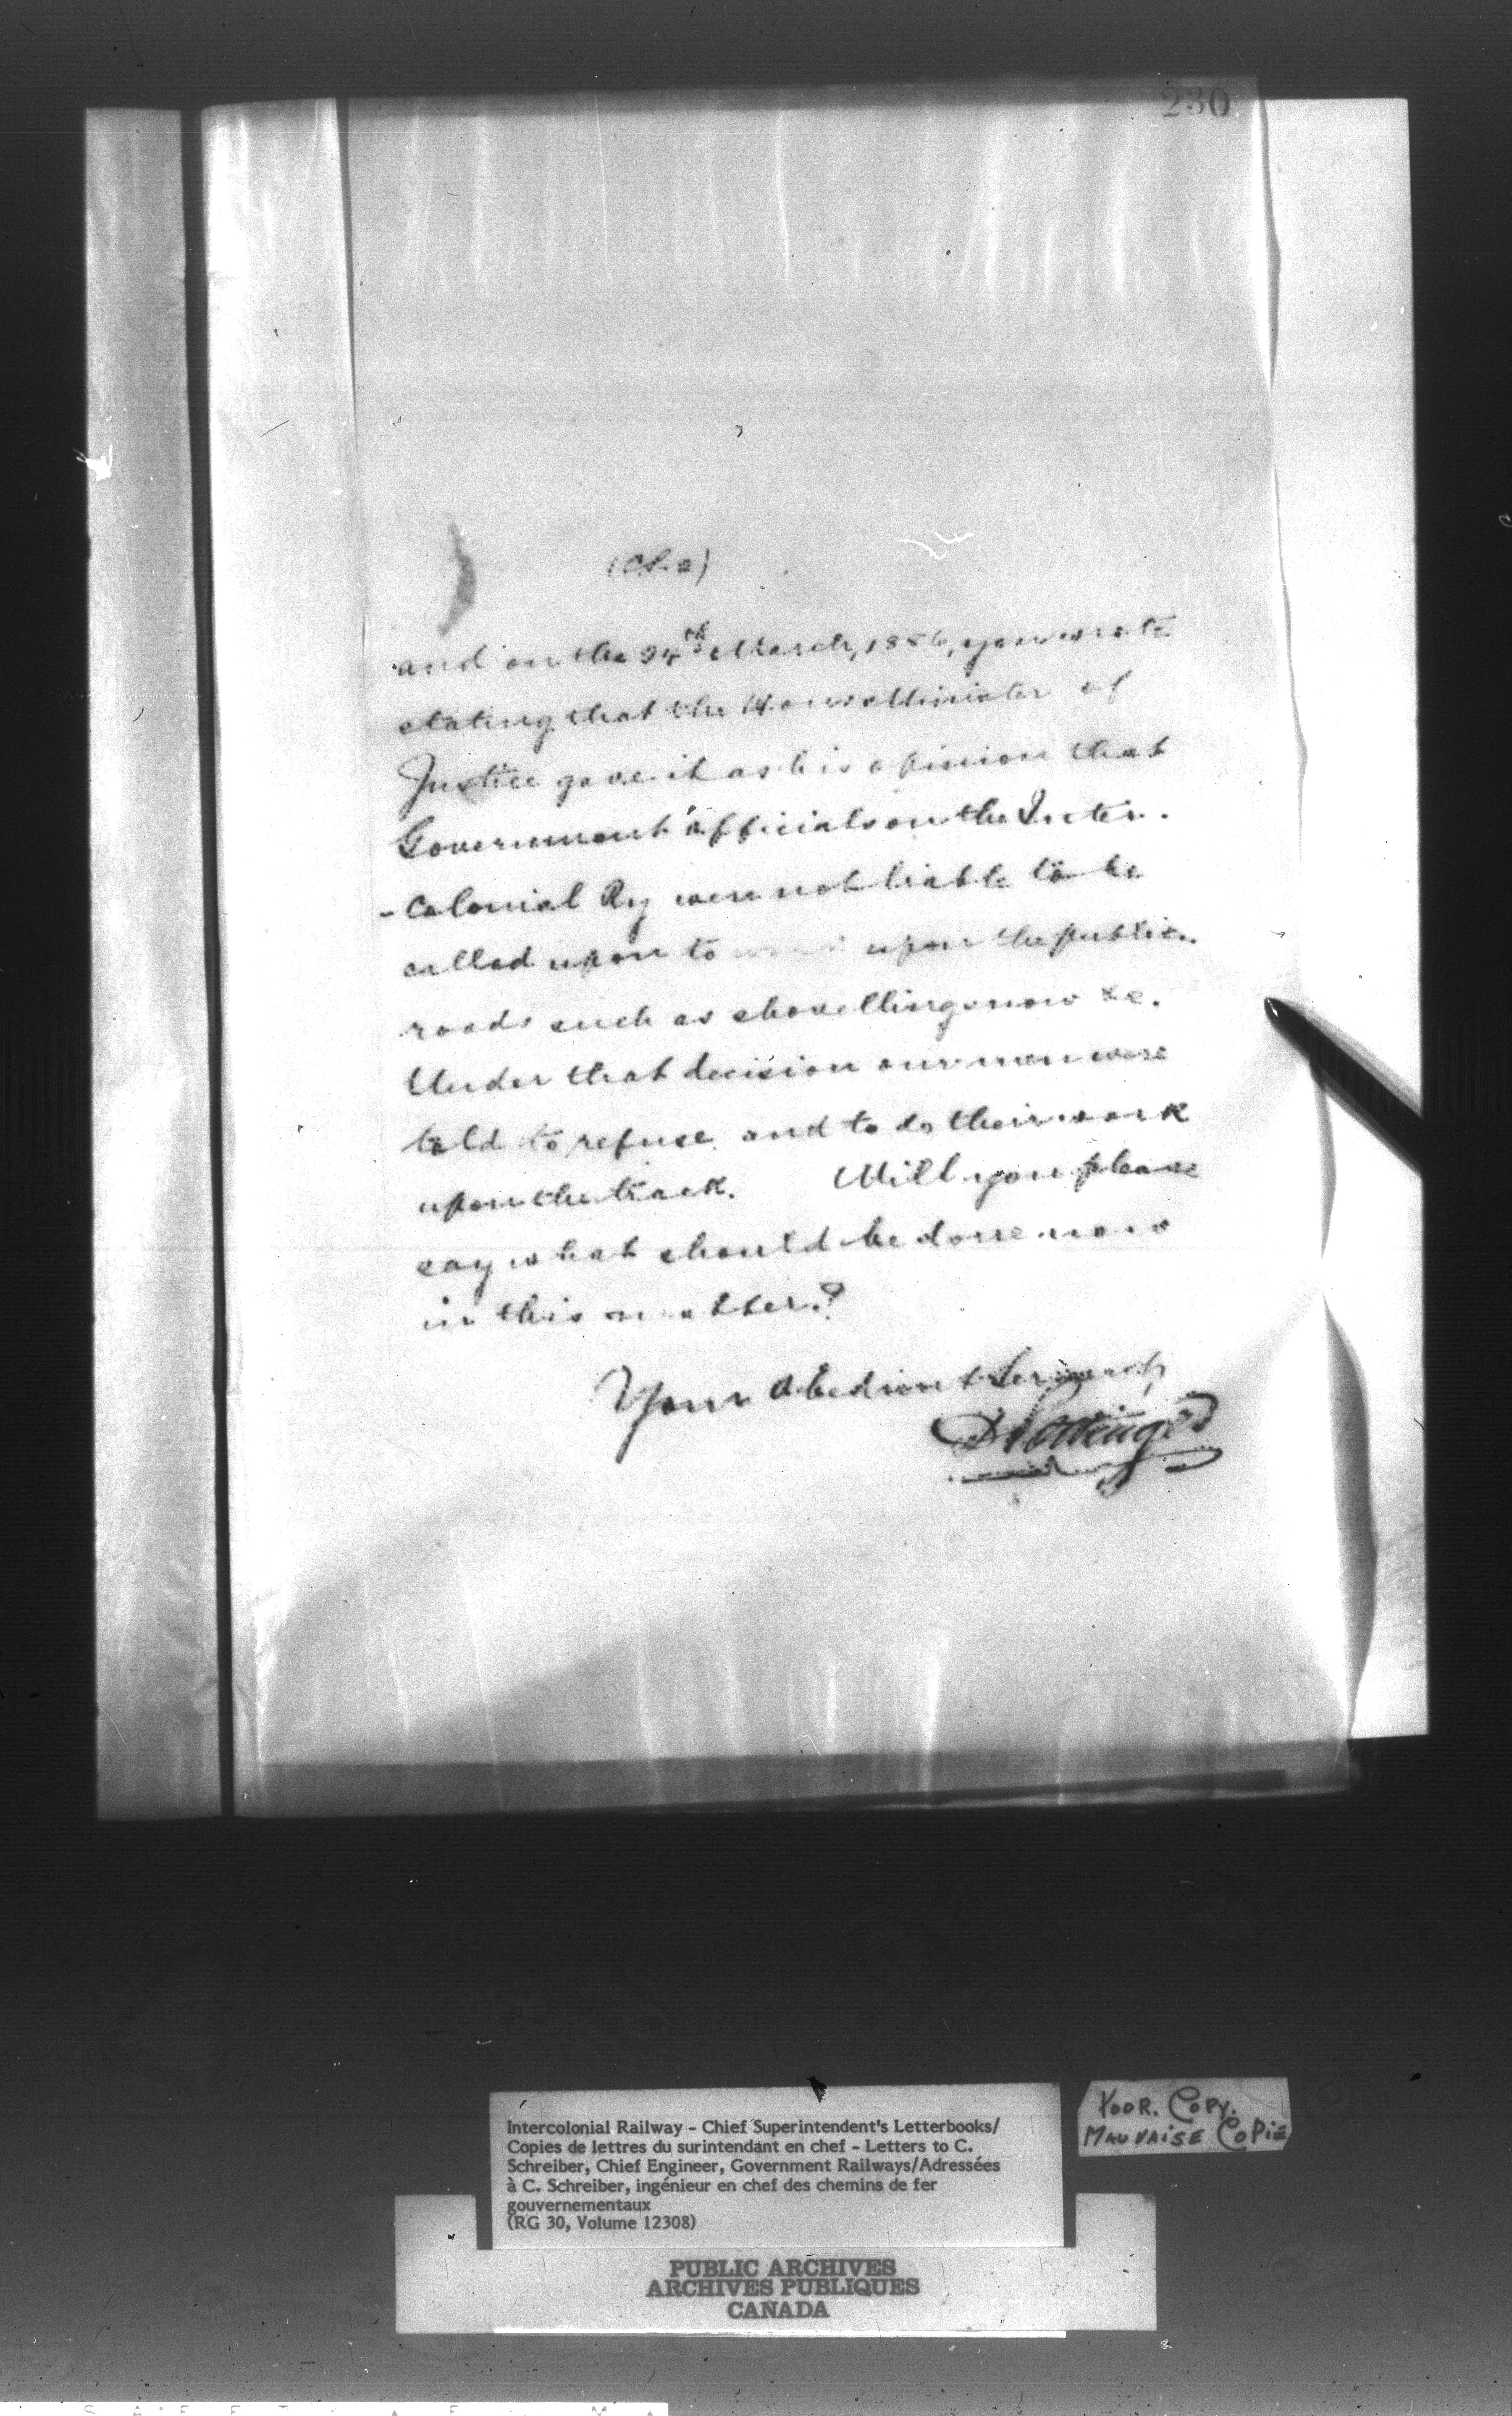 230
and on the 24th March, 1886, you wrote
stating that the Hon. Minister of
Justice gave it as his opinion that
Government officials on the Inter.
- colonial Ry were not liable to be
called upon to work upon the public
roads such as shovelling snow &c.
Under that decision our men were
told to refuse and to do their work
upon the track. Will you please
say what should be done now
in this matter?
Your obedient Servant,
D Pottinger
Intercolonial Railway - Chief Superintendent's Letterbooks/
Copies de lettres du surintendant en chef - Letters to C.
Schreiber, Chief Engineer, Government Railways/Adressées
à C. Schreiber, ingénieur en chef des chemins de fer
gouvernementaux
(RG 30, Volume 12308)
POOR. COPY.
MAUVAISE COPIE
PUBLIC ARCHIVES
ARCHIVES PUBLIQUES
CANADA